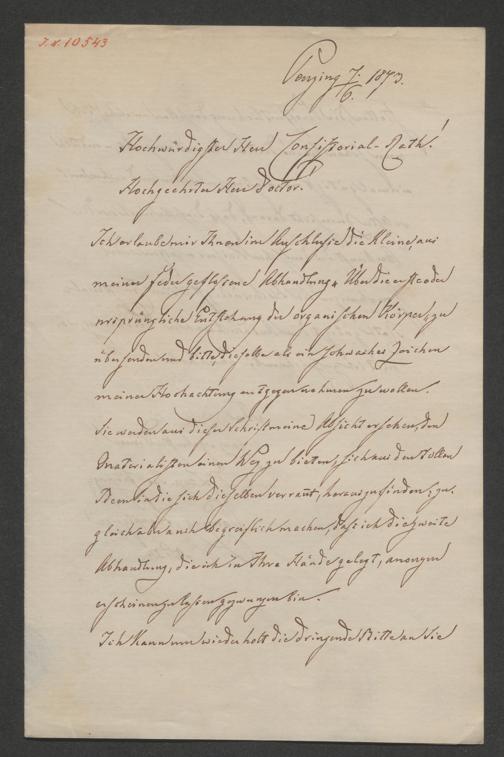 J.N. 10543
Penzing 7/6. 1873.
Hochwürdigster Herr Consistorial-Rath!
Hochgeehrter Herr Doctor!
Ich erlaube mir Ihnen im Anschluße die kleine, aus
meiner Feder geflossene Abhandlung „Über die erste oder
ursprüngliche Entstehung der organischen Körper" zu
übersenden und bitte, dieselbe als ein schwaches Zeichen
meiner Hochachtung entgegennehmen zu wollen.
Sie werden aus dieser Schrift meine Absicht ersehen, den
Materialisten einen Weg zu bieten, sich aus den tollen
Ideen in die sich dieselben verrannt, herauszufinden; zu-
gleich aber auch begreiflich machen, daß ich die zweite
Abhandlung, die ich in Ihre Hände gelegt, anonym
erscheinen zu lassen gezwungen bin.
Ich kann nur wiederholt die dringende Bitte an Sie